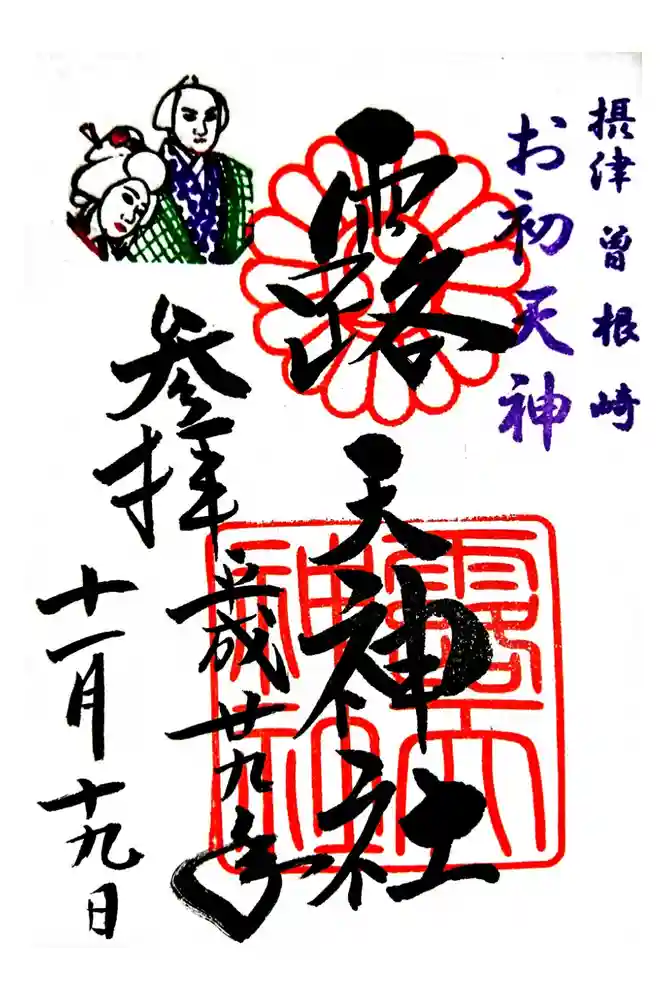 摂津 曽根崎
お初天神
露天神社
参拝
平成廿九年
十一月十九日
露天
神社